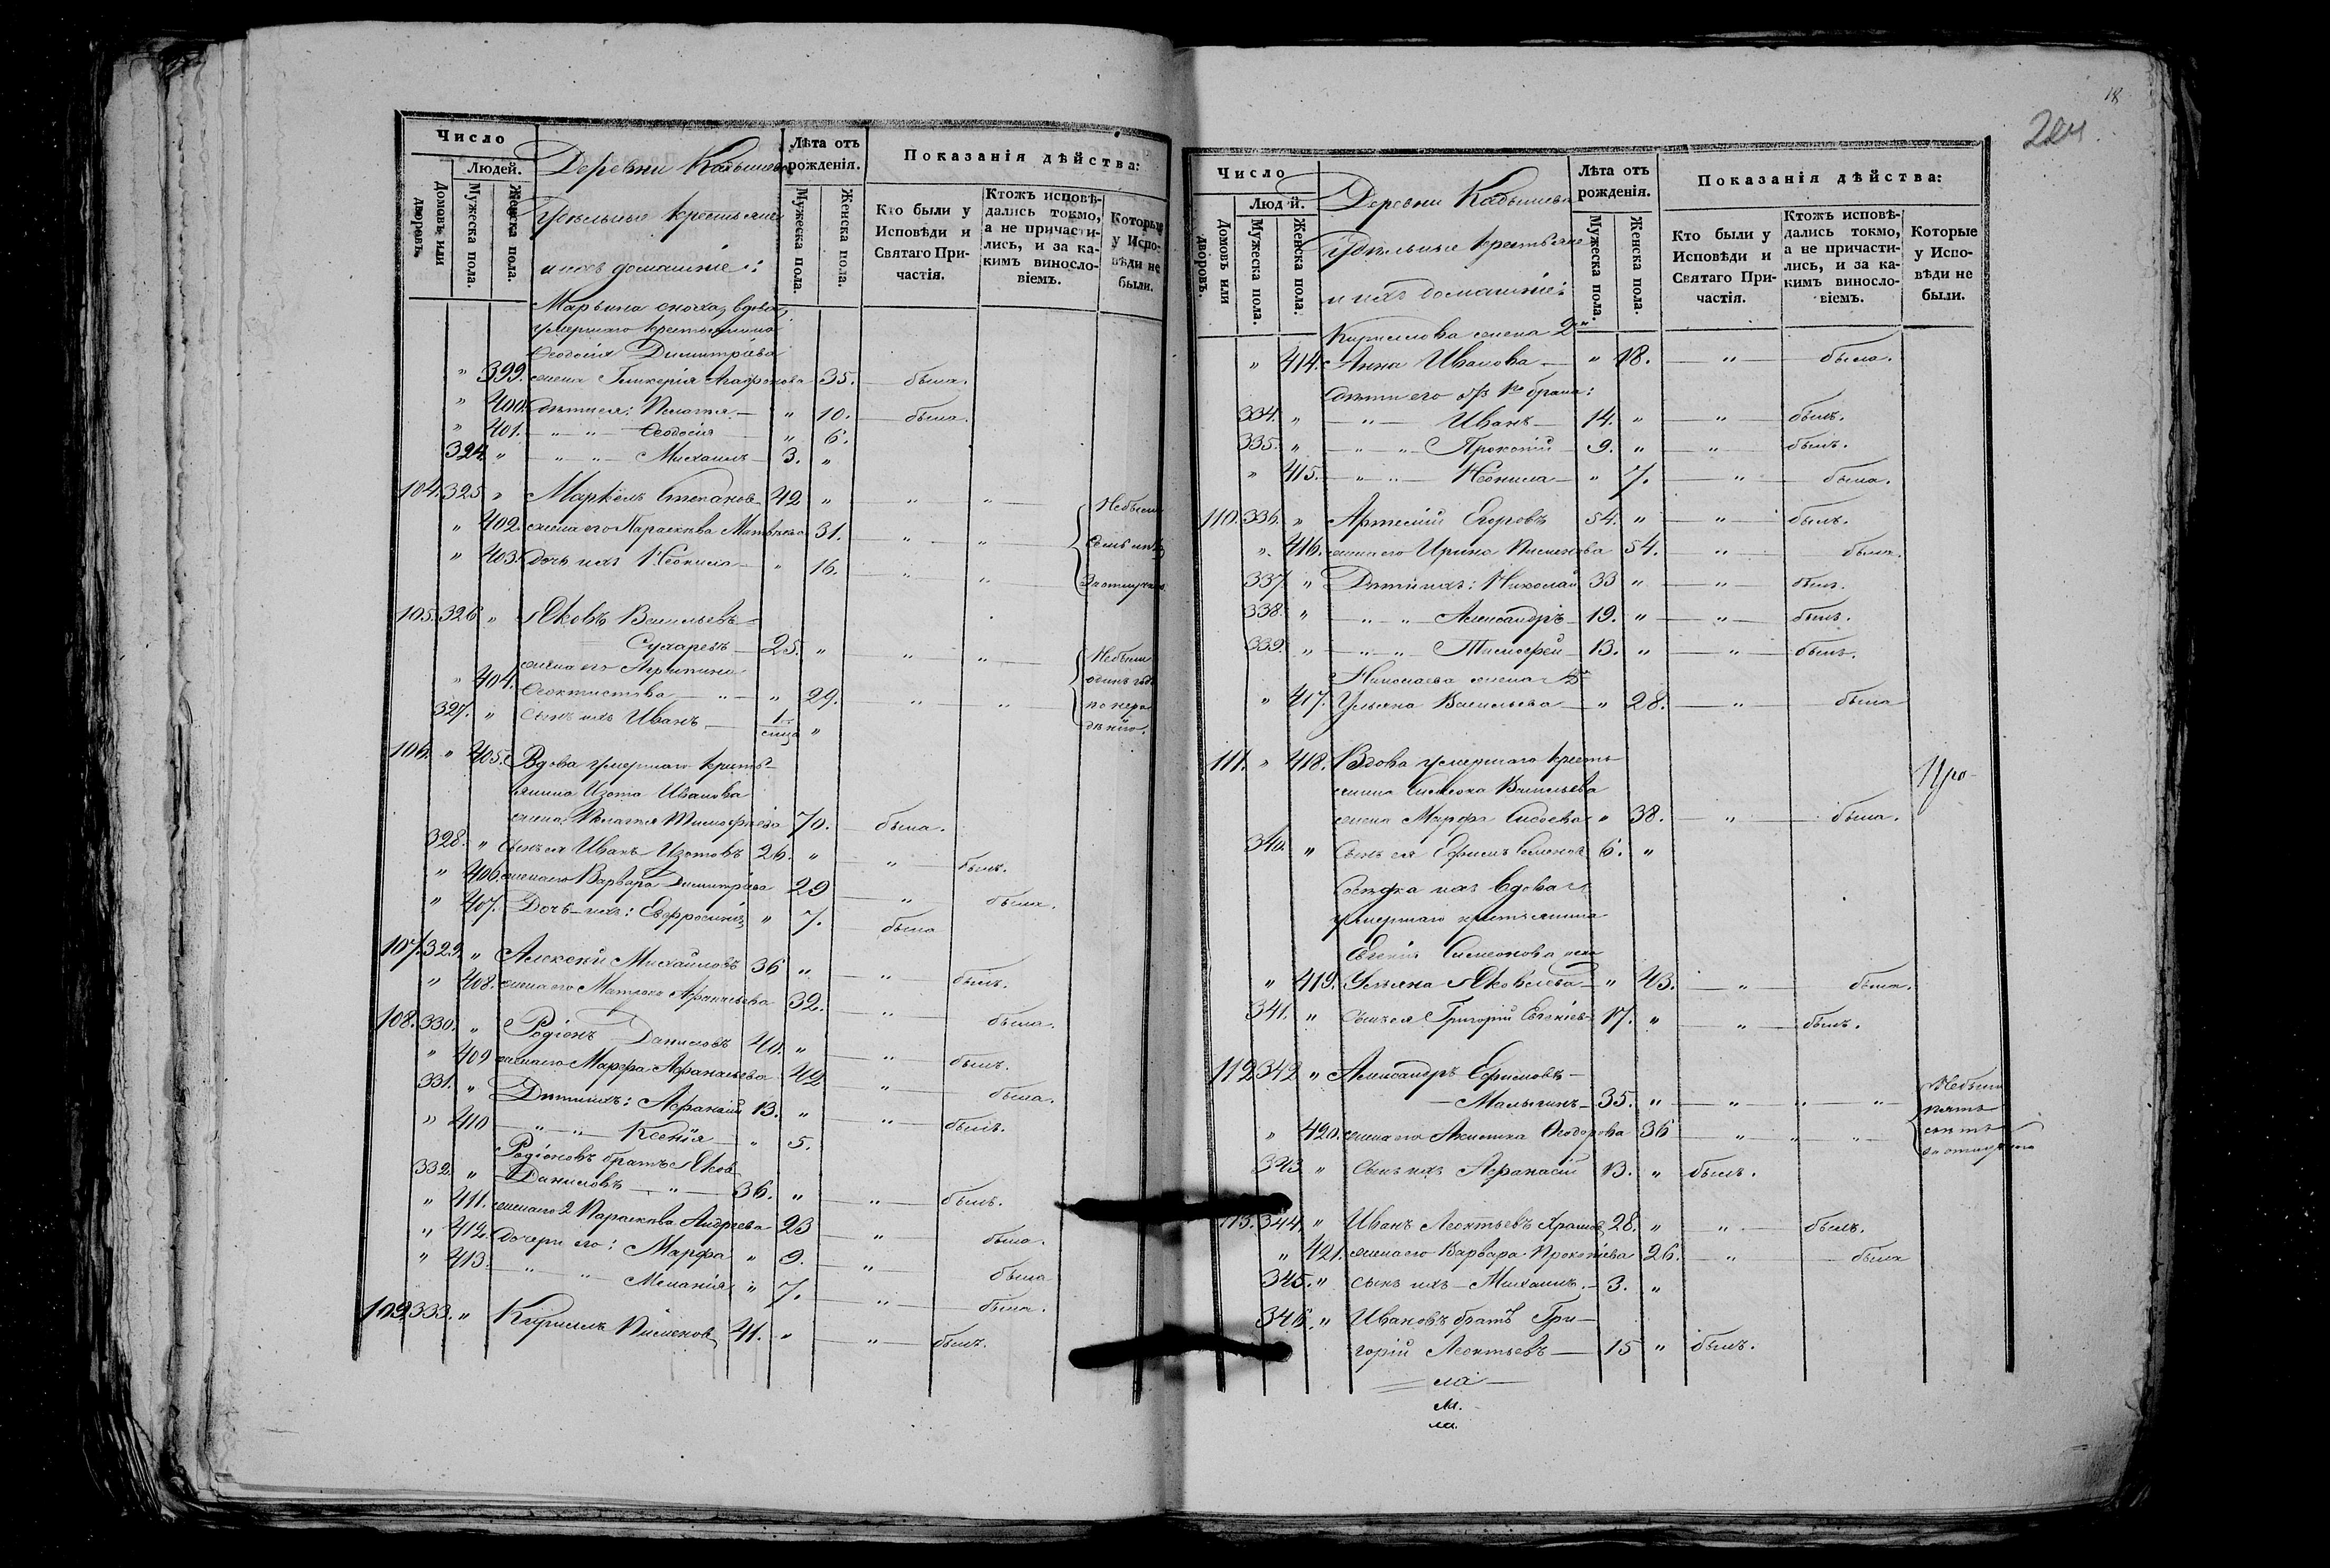 Число
Людей.
Домовъ или дворовъ.
Мужеска пола.
Женска пола.
Деревни Кадышева
Удѣльные крестьяне
и ихъ домашніе:
Лѣта отъ рожденія.
Мужеска пола.
Женска пола.
Показанія дѣйства:
Кто были у Исповѣди и Святаго Причастія.
Ктожъ исповѣдались токмо, а не причастились, и за какимъ винословіемъ.
Которые у Исповѣди не были.
Марьина сноха, вдова
умершаго крестьянина
Ѳеодосія Димитріева
" 399. жена Гликерія Агафонова 35. была.
" 400. дѣти ея: Пелагея " 10. была.
" 401. " " Ѳеодосія " 6.
324. " " " Михаилъ 3. "
104. 325. " Маркелъ Степановъ 42 " " " Небыли
" 402. жена его Параскева Матвѣева 31. " " семь лѣтъ
" 403. дочь ихъ Неонила " 16. " " за отлучкою
105. 326. " Яковъ Васильевъ
Сухаревъ 25. " " " Небыли
жена его Агрипина один годъ
" 404. Ѳеоктистова " " 29. " " по нера-
327. " сынъ ихъ Иванъ 1/ " дѣнію.
106. " 405. Вдова умершаго кресть-
янина Изота Иванова
жена Пелагея Тимофѣева 70. была.
328. " Сынъ ея Иванъ Изотовъ 26. " " былъ.
" 406. жена его Варвара Димитріева 29 " была.
" 407. Дочь ихъ: Евфросинія " 7. была
107. 329. " Алексѣй Михайловъ 36 " " былъ.
" 408. жена его Матрона Афанасьева 32. " была.
108. 330. " Родіонъ Даниловъ 40. " " былъ.
" 409 жена его Марфа Афанасьева 42 " была.
331. " Дѣти ихъ: Афанасій 13. " " былъ.
" 410 " " Ксенія " 5.
Родіоновъ братъ Яковъ
332. " Даниловъ " 36. " " былъ.
" 411. жена его 2 Параскева Андреева 23 " была.
" 412. Дочери его: Марфа " 9. " была
" 413. " " Меланія " 7. " была.
109. 333. " Кириллъ Пименовъ 41. " " былъ.
18
Число
Людй.
Домовъ или дворовъ.
Мужеска пола.
Женска пола.
Деревни Кадышева
Удѣльные крестьяне
и ихъ домашніе:
Лѣта отъ рожденія.
Мужеска пола.
Женска пола.
Показанія дѣйства:
Кто были у Исповѣди и Святаго Причастія.
Ктожъ исповѣдались токмо, а не причастились, и за какимъ винословіемъ.
Которые у Исповѣди не были.
Кириллова жена 2я
" 414. Анна Иванова " 18. " была.
Дѣти его 1го брака:
334. " " Иванъ 14. " " былъ.
335. " " " Прокопій 9. " " былъ.
" 415. " " Неонила " 7. " была.
110. 336. " Артемій Егоровъ 54. " " былъ.
" 416. жена его Ирина Пименова 54. " была.
337 " Дѣти ихъ: Николай 33 " " былъ.
338. " " " Александръ 19. " " былъ.
339. " " " Тимофей 13. " " былъ.
Николаева жена
" 417. Ульяна Васильева " 28. " была
111. " 418. Вдова умершаго кресть-
янина Симеона Васильева
жена Марфа Сысоева " 38. " была.
340. " Сынъ ея Ефимъ Семеновъ 6. "
Сосѣдка ихъ вдова
умершаго крестьянина
Евгенія Симеонова жена
" 419. Ульяна Яковлева " 43. " была.
341. " Сынъ ея Григорій Евгеніевъ 17. " " былъ.
112. 342 " Александръ Ефимовъ
Малыгинъ 35. " " " " Небыли
пять
" 420. жена его Акилина Ѳеодорова 36 " " " лѣтъ
за отлучкою
343 " Сынъ ихъ Афанасій 13. " былъ.
113. 344. " Иванъ Леонтьевъ 28. " " былъ.
" 421. жена его Варвара Прокопіева 26. " была
345. " сынъ ихъ Михаилъ. 3. "
346. " Ивановъ братъ Гри-
горій Леонтьевъ 15 " былъ.